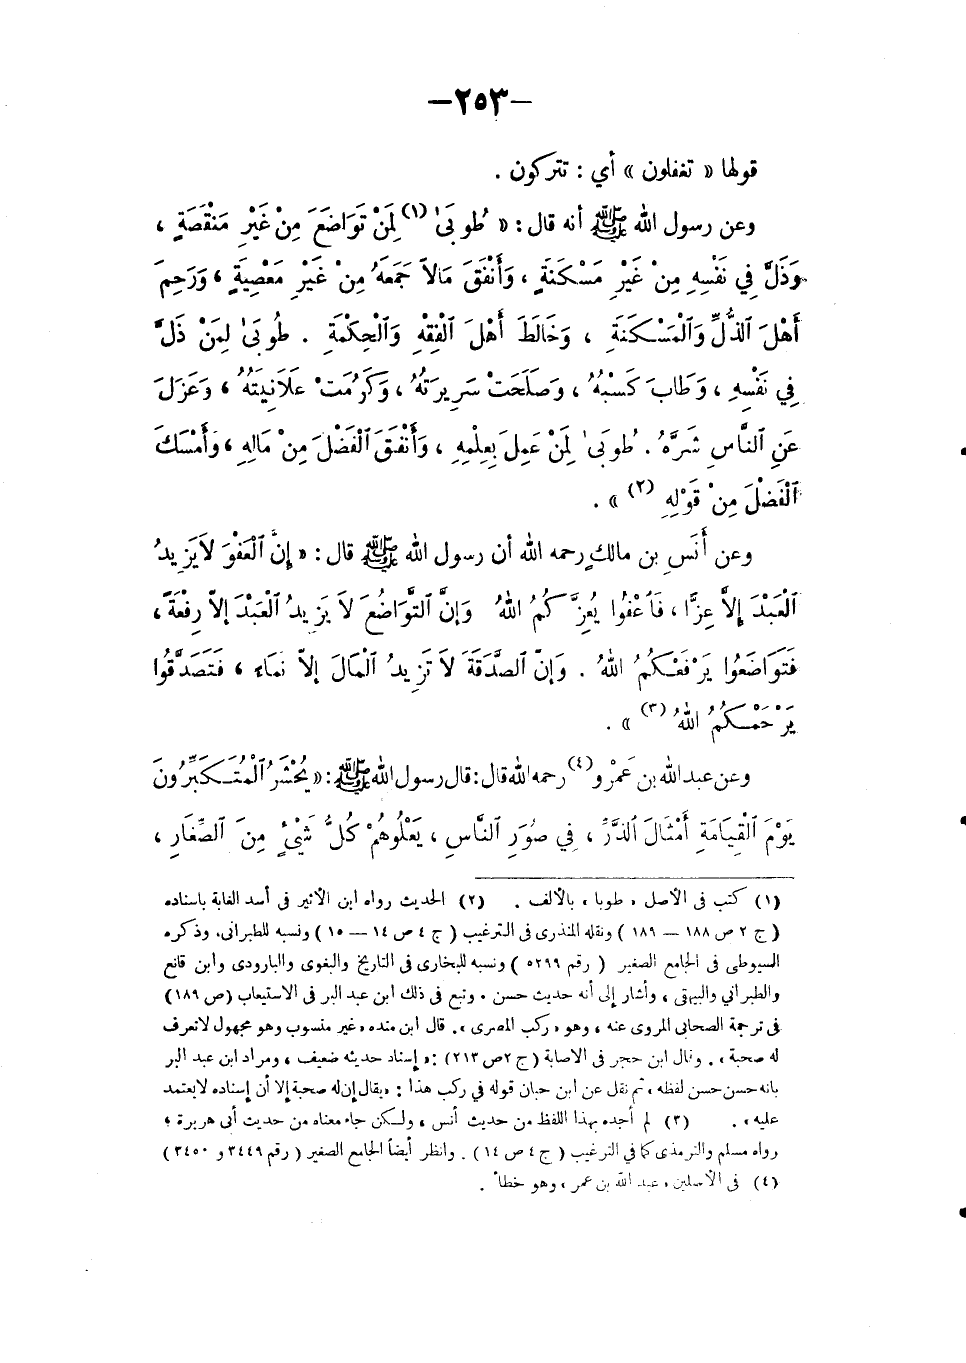 —٢٥٣—
قولها « تغفلون » أي : تتركون .
وعن رسول الله ﷺ أنه قال : « طُوبَىٰ (١) لِمَنْ تَوَاضَعَ مِنْ غَيْرِ مَنْقَصَةٍ ،
وَذَلَّ فِي نَفْسِهِ مِنْ غَيْرِ مَسْكَنَةٍ ، وَأَنْفَقَ مَالاً جَمَعَهُ مِنْ غَيْرِ مَعْصِيَةٍ ، وَرَحِمَ
أَهْلَ ٱلذُّلِّ وَٱلْمَسْكَنَةِ ، وَخَالَطَ أَهْلَ ٱلْفِقْهِ وَٱلْحِكْمَةِ . طُوبَىٰ لِمَنْ ذَلَّ
فِي نَفْسِهِ ، وَطَابَ كَسْبُهُ ، وَصَلَحَتْ سَرِيرَتُهُ ، وَكَرُمَتْ عَلَانِيَتُهُ ، وَعَزَلَ
عَنِ ٱلنَّاسِ شَرَّهُ . طُوبَىٰ لِمَنْ عَمِلَ بِعِلْمِهِ ، وَأَنْفَقَ ٱلْفَضْلَ مِنْ مَالِهِ ، وَأَمْسَكَ
ٱلْفَضْلَ مِنْ قَوْلِهِ (٢) » .
وعن أَنَسِ بن مالكٍ رحمه الله أن رسول الله ﷺ قال : « إِنَّ ٱلْعَفْوَ لَا يَزِيدُ
ٱلْعَبْدَ إِلاَّ عِزًّا ، فَٱعْفُوا يُعِزَّكُمُ اللهُ وَإِنَّ ٱلتَّوَاضُعَ لَا يَزِيدُ ٱلْعَبْدَ إِلاَّ رِفْعَةً ،
فَتَوَاضَعُوا يَرْفَعْكُمُ اللهُ . وَإِنَّ ٱلصَّدَقَةَ لَا تَزِيدُ ٱلْمَالَ إِلاَّ نَمَاء ، فَتَصَدَّقُوا
يَرْحَمْكُمُ اللهُ (٣) » .
وعن عبد الله بن عَمْرٍو (٤) رحمه الله قال : قال رسول الله ﷺ : « يُحْشَرُ ٱلْمُتَكَبِّرُونَ
يَوْمَ ٱلْقِيَامَةِ أَمْثَالَ ٱلذَّرِّ ، فِي صُوَرِ ٱلنَّاسِ ، يَعْلُوهُمْ كُلُّ شَيْءٍ مِنَ ٱلصَّغَارِ ،
(١) كتب فى الأصل ، طوبا ، بالألف . (٢) الحديث رواه ابن الأثير فى أسد الغابة باسناده
( ج ٢ ص ١٨٨ — ١٨٩ ) ونقله المنذرى فى الترغيب ( ج ٤ ص ١٤ — ١٥ ) ونسبه للطبرانى، وذكره
السيوطى فى الجامع الصغير ( رقم ٥٢٩٩ ) ونسبه للبخارى فى التاريخ والبغوى والبارودى وابن قانع
والطبرانى والبيهقى ، وأشار إلى أنه حديث حسن . وتبع فى ذلك ابن عبد البر فى الاستيعاب ( ص ١٨٩ )
فى ترجمة الصحابى المروى عنه ، وهو « ركب المصرى ». قال ابن منده « غير منسوب وهو مجهول لا تعرف
له صحبة » . وقال ابن حجر فى الاصابة ( ج ٢ ص ٢١٣ ) : « إسناد حديثه ضعيف ، ومراد ابن عبد البر
بانه حسن حسن لفظه » ثم نقل عن ابن حبان قوله فى ركب هذا : « يقال إن له صحبة إلا أن إسناده لا يعتمد
عليه » . (٣) لم أجده بهذا اللفظ من حديث أنس ، ولكن جاء معناه من حديث أبى هريرة ؛
رواه مسلم والترمذى كما فى الترغيب ( ج ٤ ص ١٤ ) . وانظر أيضاً الجامع الصغير ( رقم ٣٤٤٩ و ٣٤٥٠ )
(٤) فى الأصلين « عبد الله بن عمر » وهو خطأ .